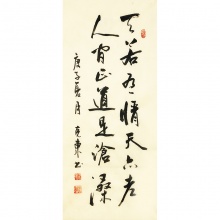 天若有情天亦老
人间正道是沧桑
庚子夏月
书